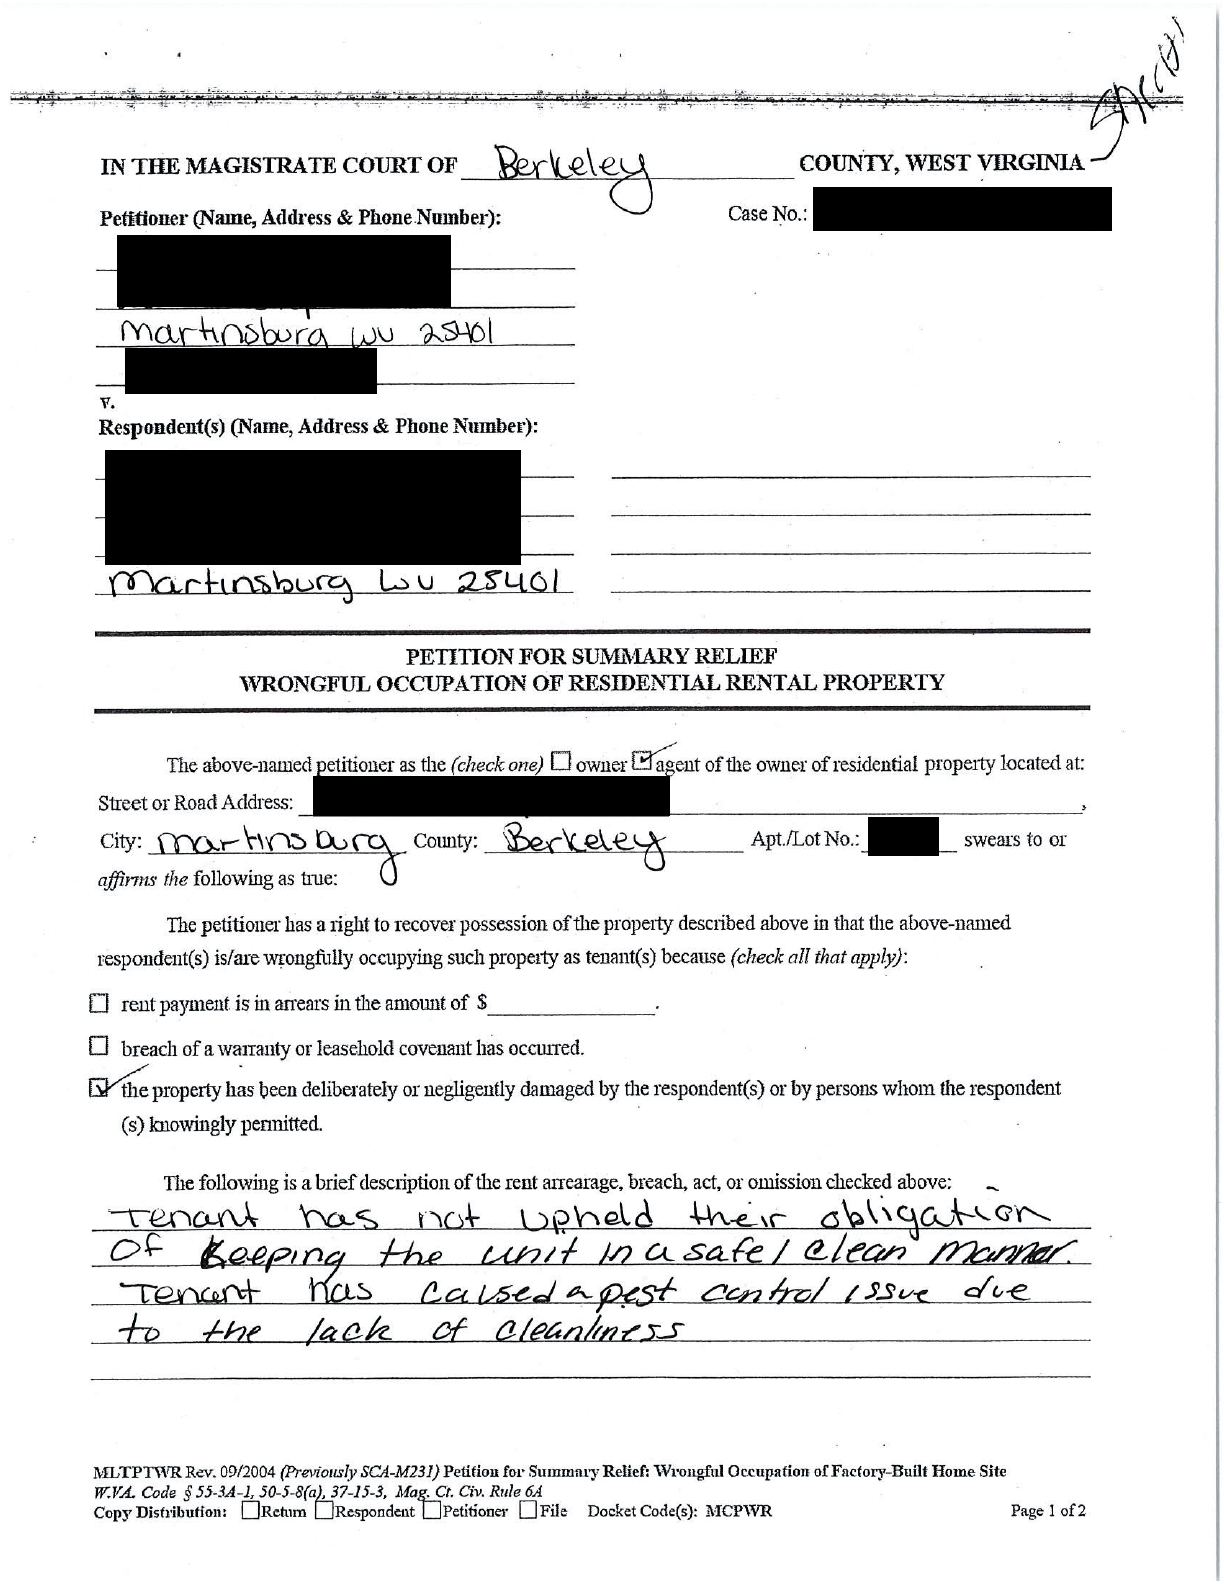 IN THE MAGISTRATE COURT OF Berkeley COUNTY, WEST VIRGINIA
Petitioner (Name, Address & Phone Number):
Case No.:
Martinsburg WV 25401
v.
Respondent(s) (Name, Address & Phone Number):
Martinsburg WV 25401
PETITION FOR SUMMARY RELIEF
WRONGFUL OCCUPATION OF RESIDENTIAL RENTAL PROPERTY
The above-named petitioner as the (check one) ☐ owner ☑ agent of the owner of residential property located at:
Street or Road Address: ,
City: Martinsburg County: Berkeley Apt./Lot No.: swears to or
affirms the following as true:
The petitioner has a right to recover possession of the property described above in that the above-named
respondent(s) is/are wrongfully occupying such property as tenant(s) because (check all that apply):
☐ rent payment is in arrears in the amount of $ .
☐ breach of a warranty or leasehold covenant has occurred.
☑ the property has been deliberately or negligently damaged by the respondent(s) or by persons whom the respondent
(s) knowingly permitted.
The following is a brief description of the rent arrearage, breach, act, or omission checked above:
Tenant has not upheld their obligation
Of keeping the unit in a safe / clean manner.
Tenant has caused a pest control issue due
to the lack of cleanliness
MLTPTWR Rev. 09/2004 (Previously SCA-M231) Petition for Summary Relief: Wrongful Occupation of Factory-Built Home Site
W.VA. Code § 55-3A-1, 50-5-8(a), 37-15-3, Mag. Ct. Civ. Rule 6A
Copy Distribution: ☐ Return ☐ Respondent ☐ Petitioner ☐ File Docket Code(s): MCPWR Page 1 of 2